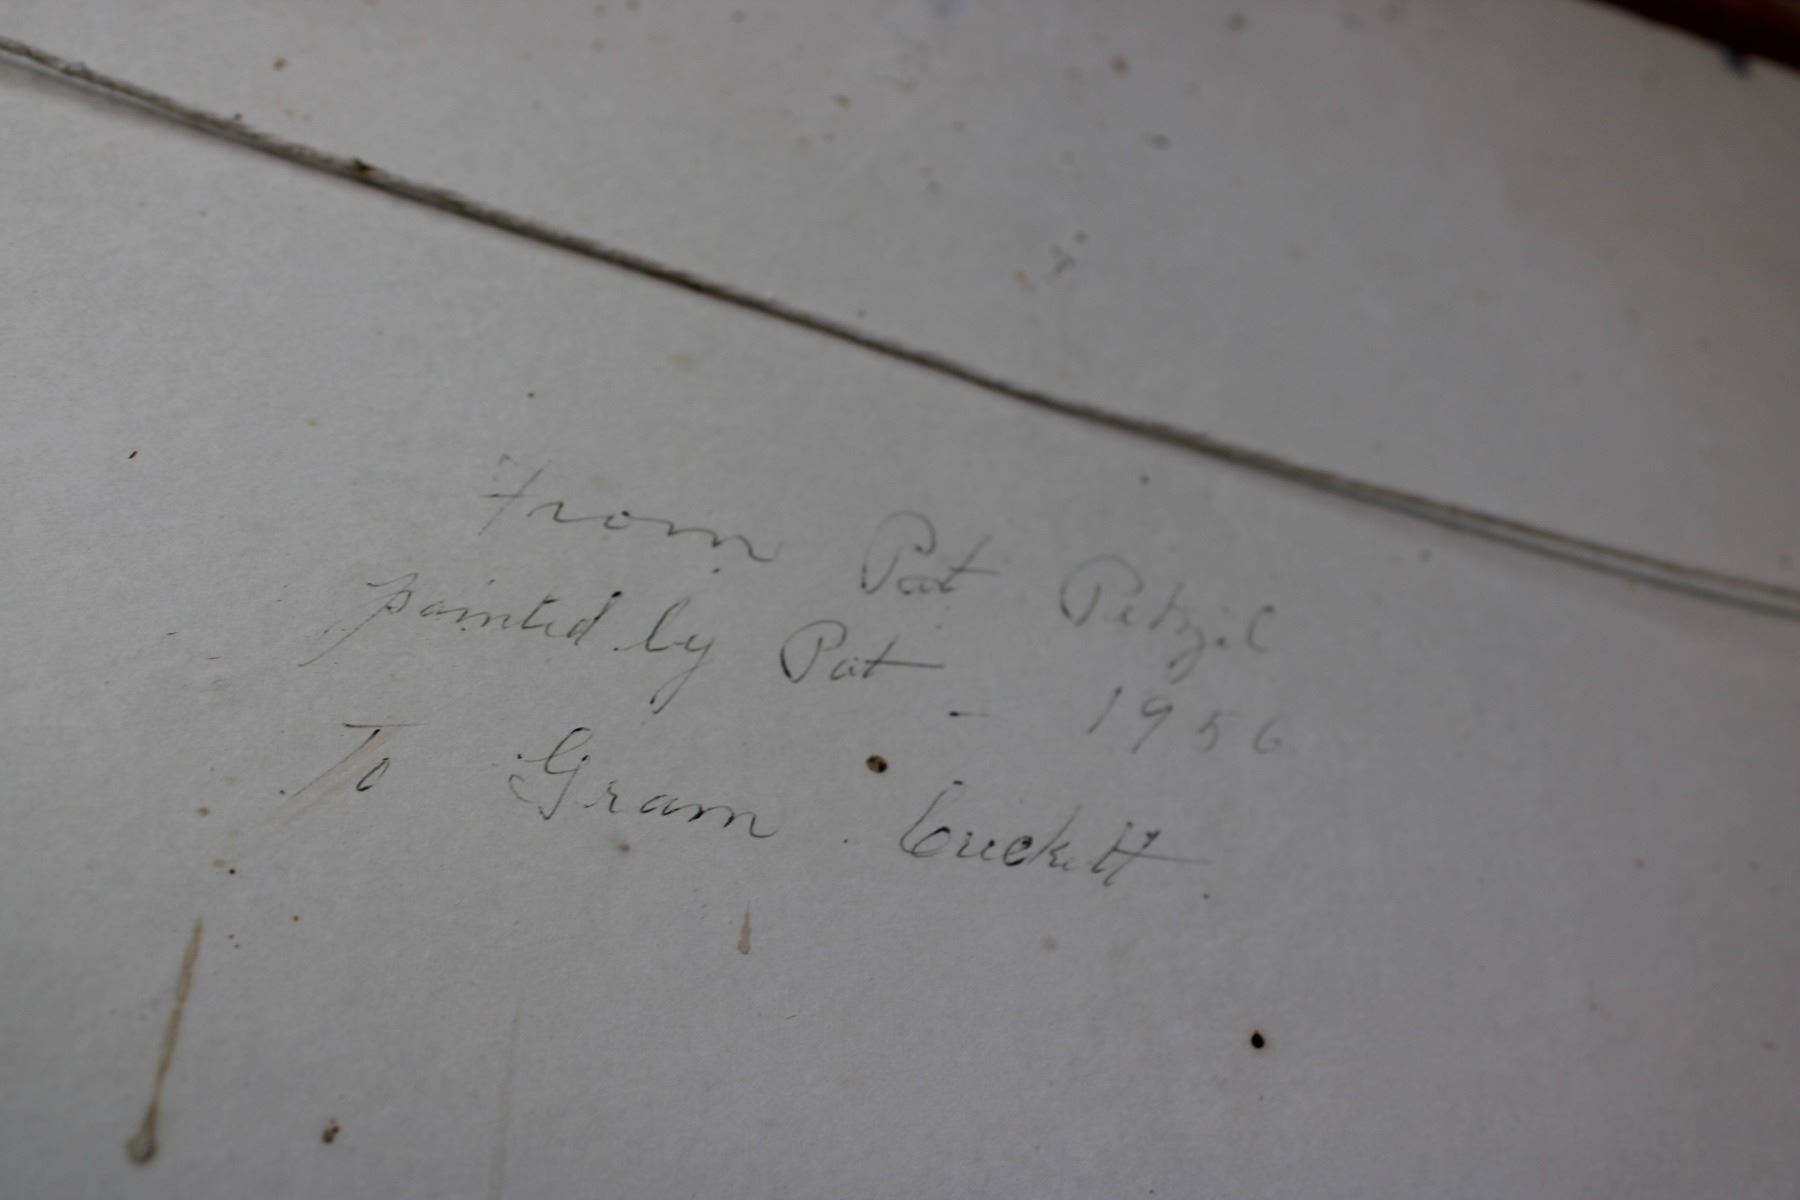 From Pat Petzil
painted by Pat - 1956
To Gram